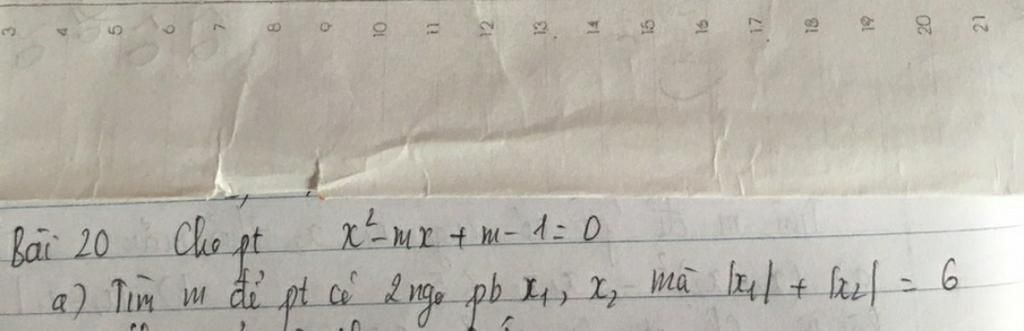 3 4 5 6 7 8 9 10 11 12 13 14 15 16 17 18 19 20 21
Bài 20 Cho pt x²-mx + m-1=0
a) Tìm m để pt có 2 ngo pb x₁, x₂ mà |x₁| + |x₂| = 6